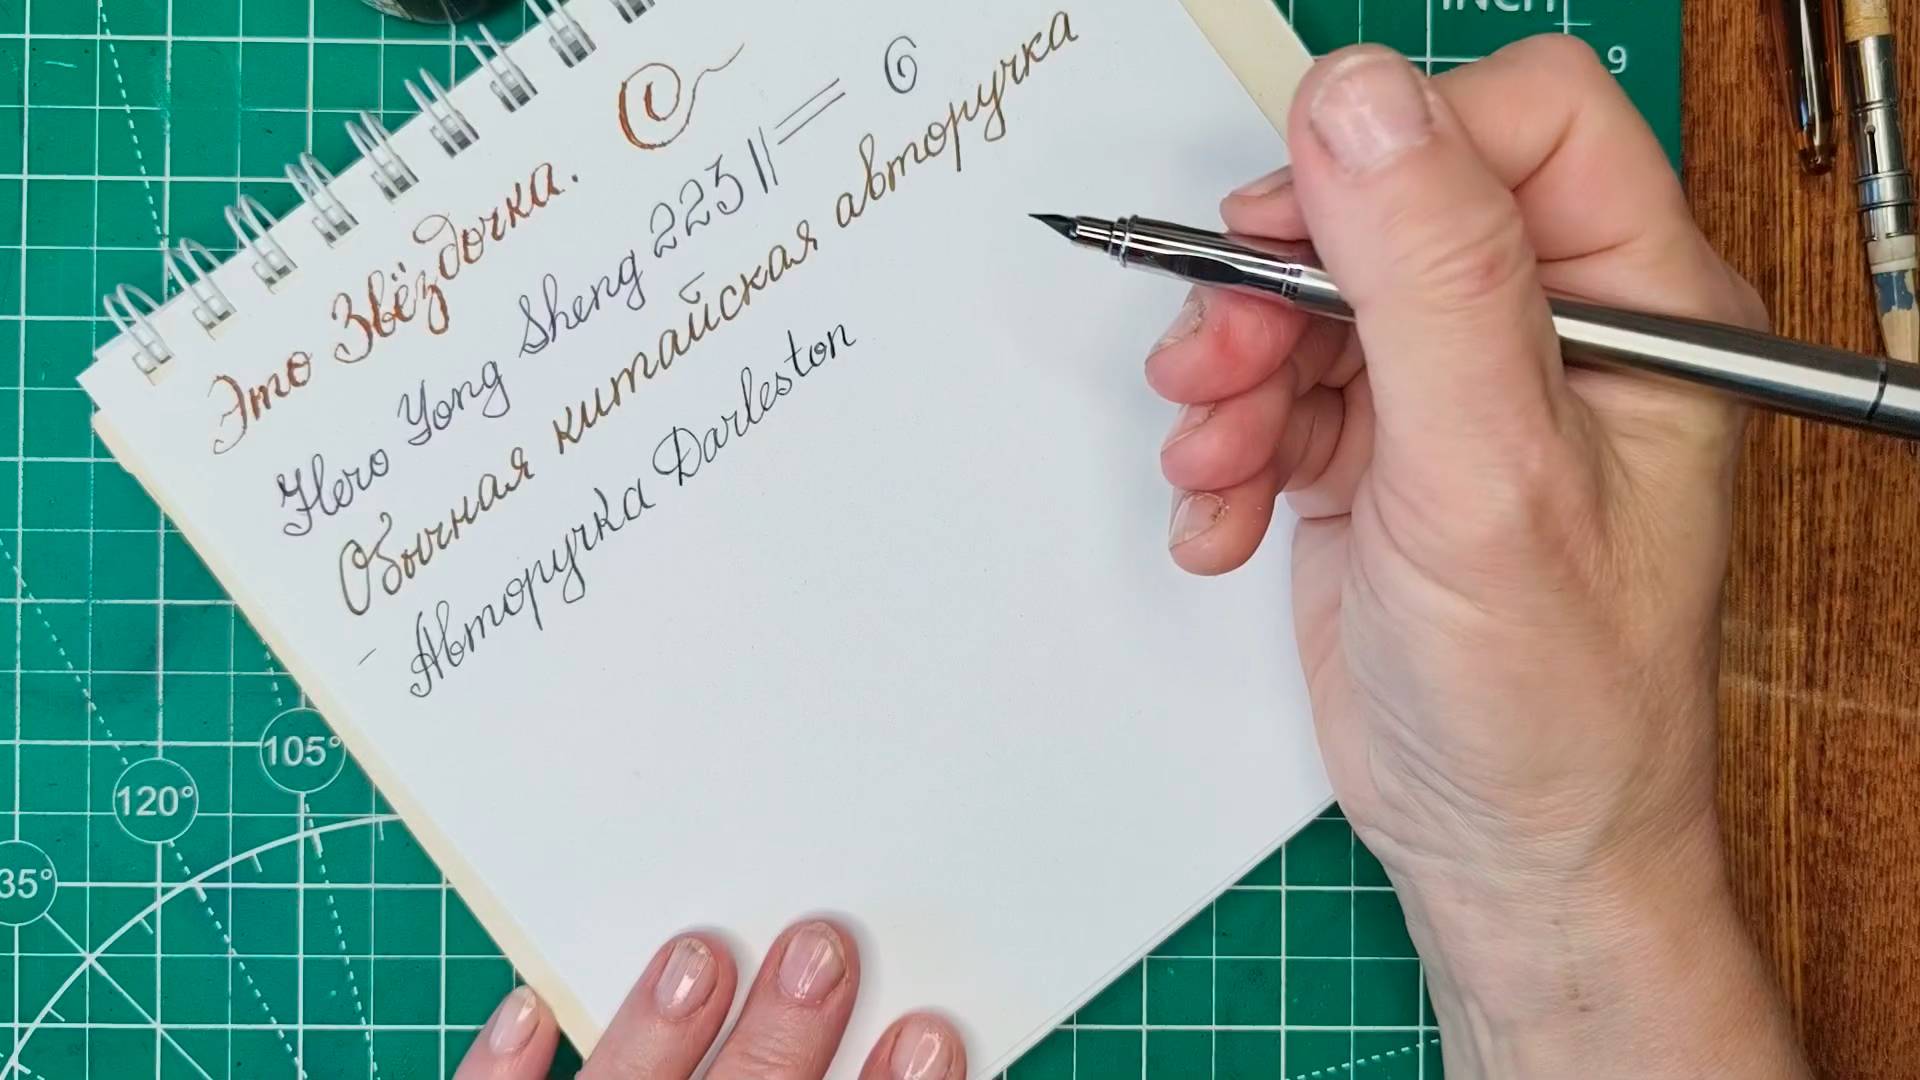 Это Звёздочка.
Hero Yong Sheng 223 || = 6
Обычная китайская авторучка
- Авторучка Darleston
INCH
9
105°
120°
35°